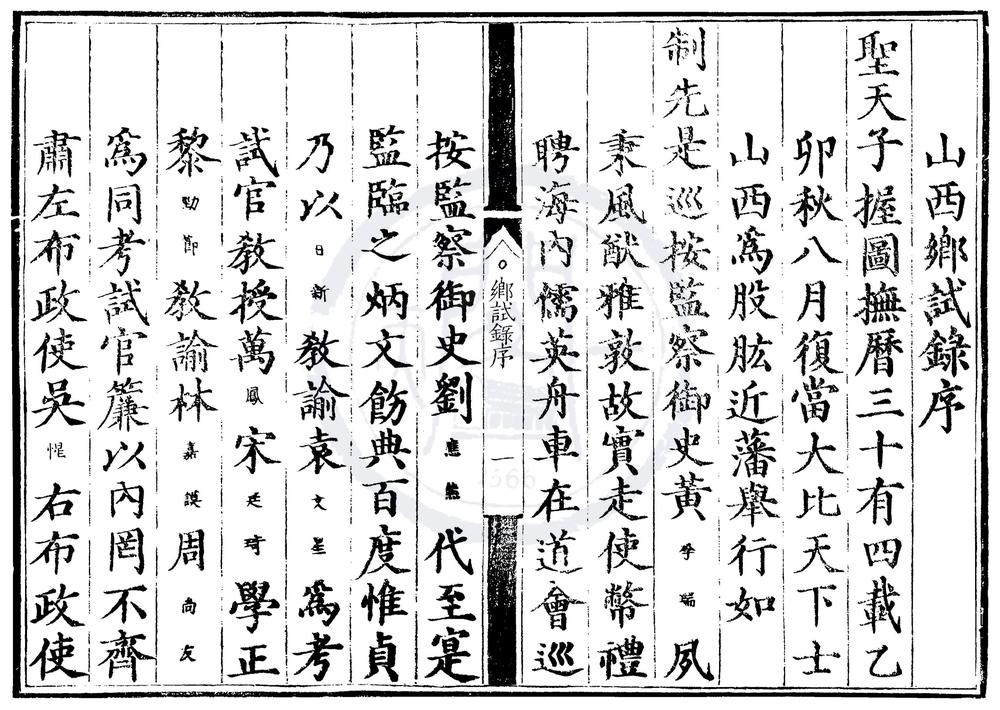 山西鄉試錄序
聖天子握圖撫曆三十有四載乙
卯秋八月復當大比天下士
山西爲股肱近藩舉行如
制先是巡按監察御史黃季瑞夙
秉風猷雅敦故實走使幣禮
聘海內儒英舟車在道會巡
鄉試錄序 一
按監察御史劉應熊代至寔
監臨之炳文飭典百度惟貞
乃以日新教諭袁文星爲考
試官教授萬鳳宋廷琦學正
黎勋節教諭林嘉謨周尚友
爲同考試官簾以內罔不齊
肅左布政使吳惺右布政使